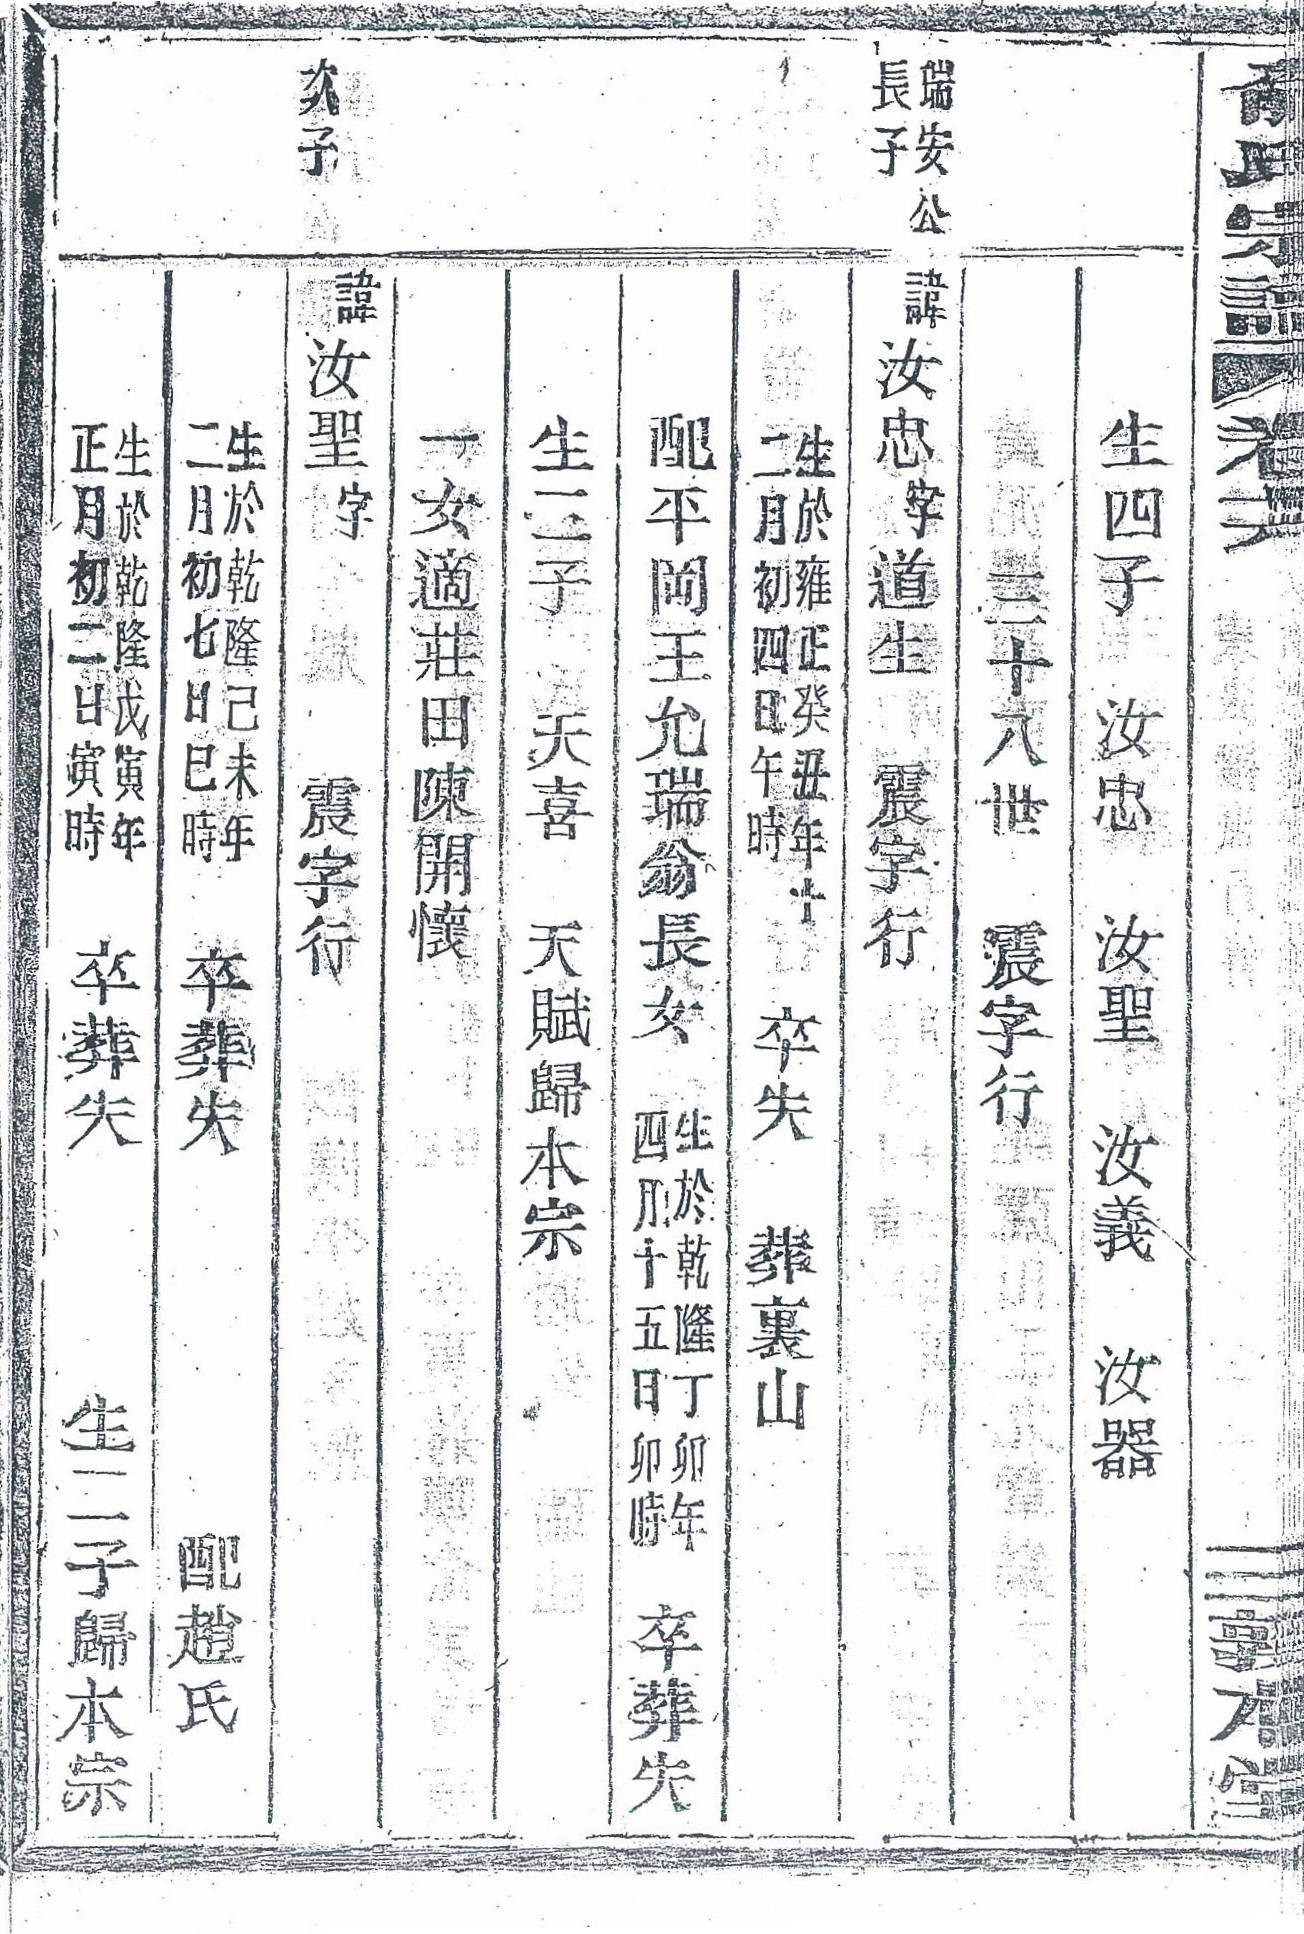 氏宗譜 卷六
三 敦本堂
生四子 汝忠 汝聖 汝義 汝器
三十八世 震字行
瑞安公
長子
諱汝忠字道生 震字行
生於雍正癸丑年十
二月初四日午時 卒失 葬裏山
配平岡王允瑞翁長女 生於乾隆丁卯年
四月十五日卯時 卒葬失
生二子 天喜 天賦歸本宗
一女適莊田陳開懷
次子
諱汝聖字 震字行
生於乾隆己未年
二月初七日巳時 卒葬失 配趙氏
生於乾隆戊寅年
正月初二日寅時 卒葬失 生二子歸本宗